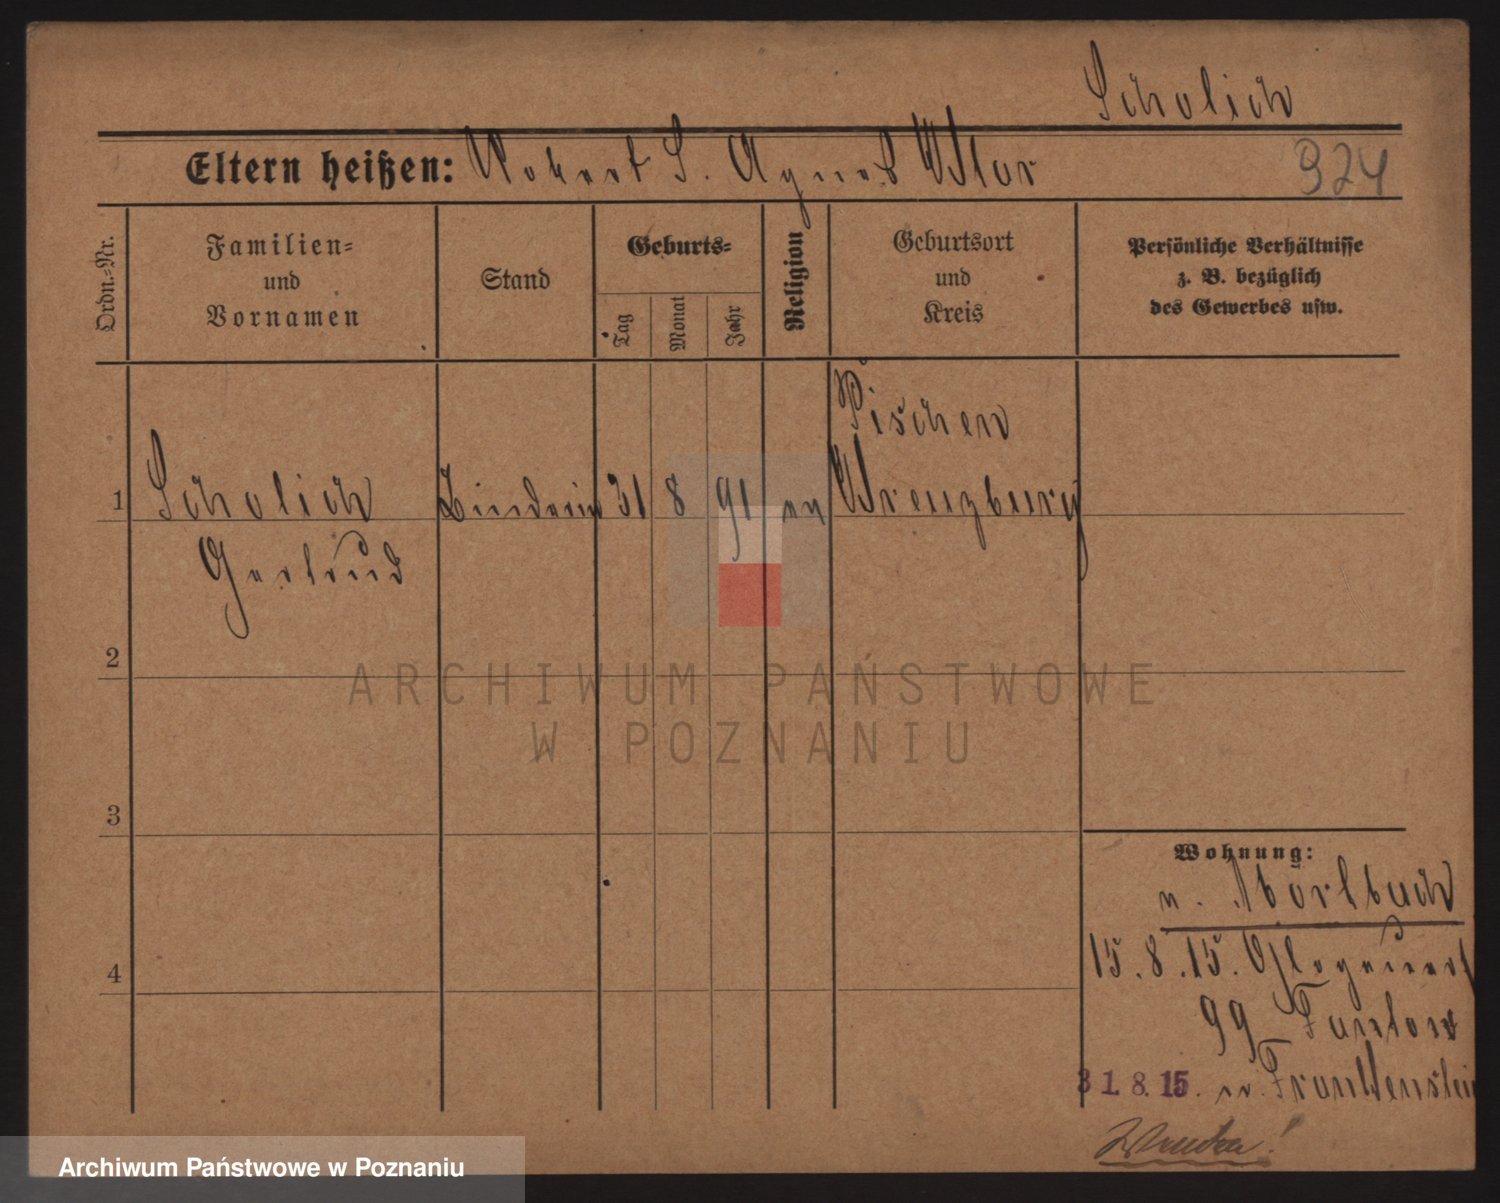 Scholich
Eltern heißen: Robert S. Agnes Klor
924
Ordn.-Nr.
Familien-
und
Vornamen
Stand
Geburts-
Tag
Monat
Jahr
Religion
Geburtsort
und
Kreis
Persönliche Verhältnisse
z. B. bezüglich
des Gewerbes usw.
Pischen
1 Scholich Binderin 31 8 91 ev Kreuzburg
Gertrud
2
ARCHIWUM PAŃSTWOWE
W POZNANIU
3
Wohnung:
v.
15.8.15. Glogauerst
99
4
31.8.15. n. Frankenstein
Archiwum Państwowe w Poznaniu